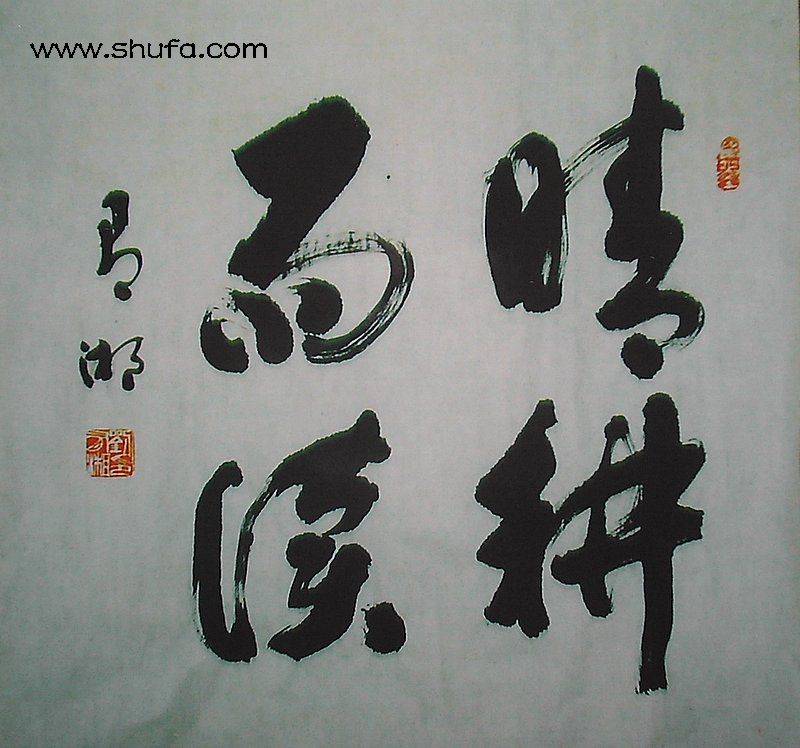 www.shufa.com
晴耕
雨读